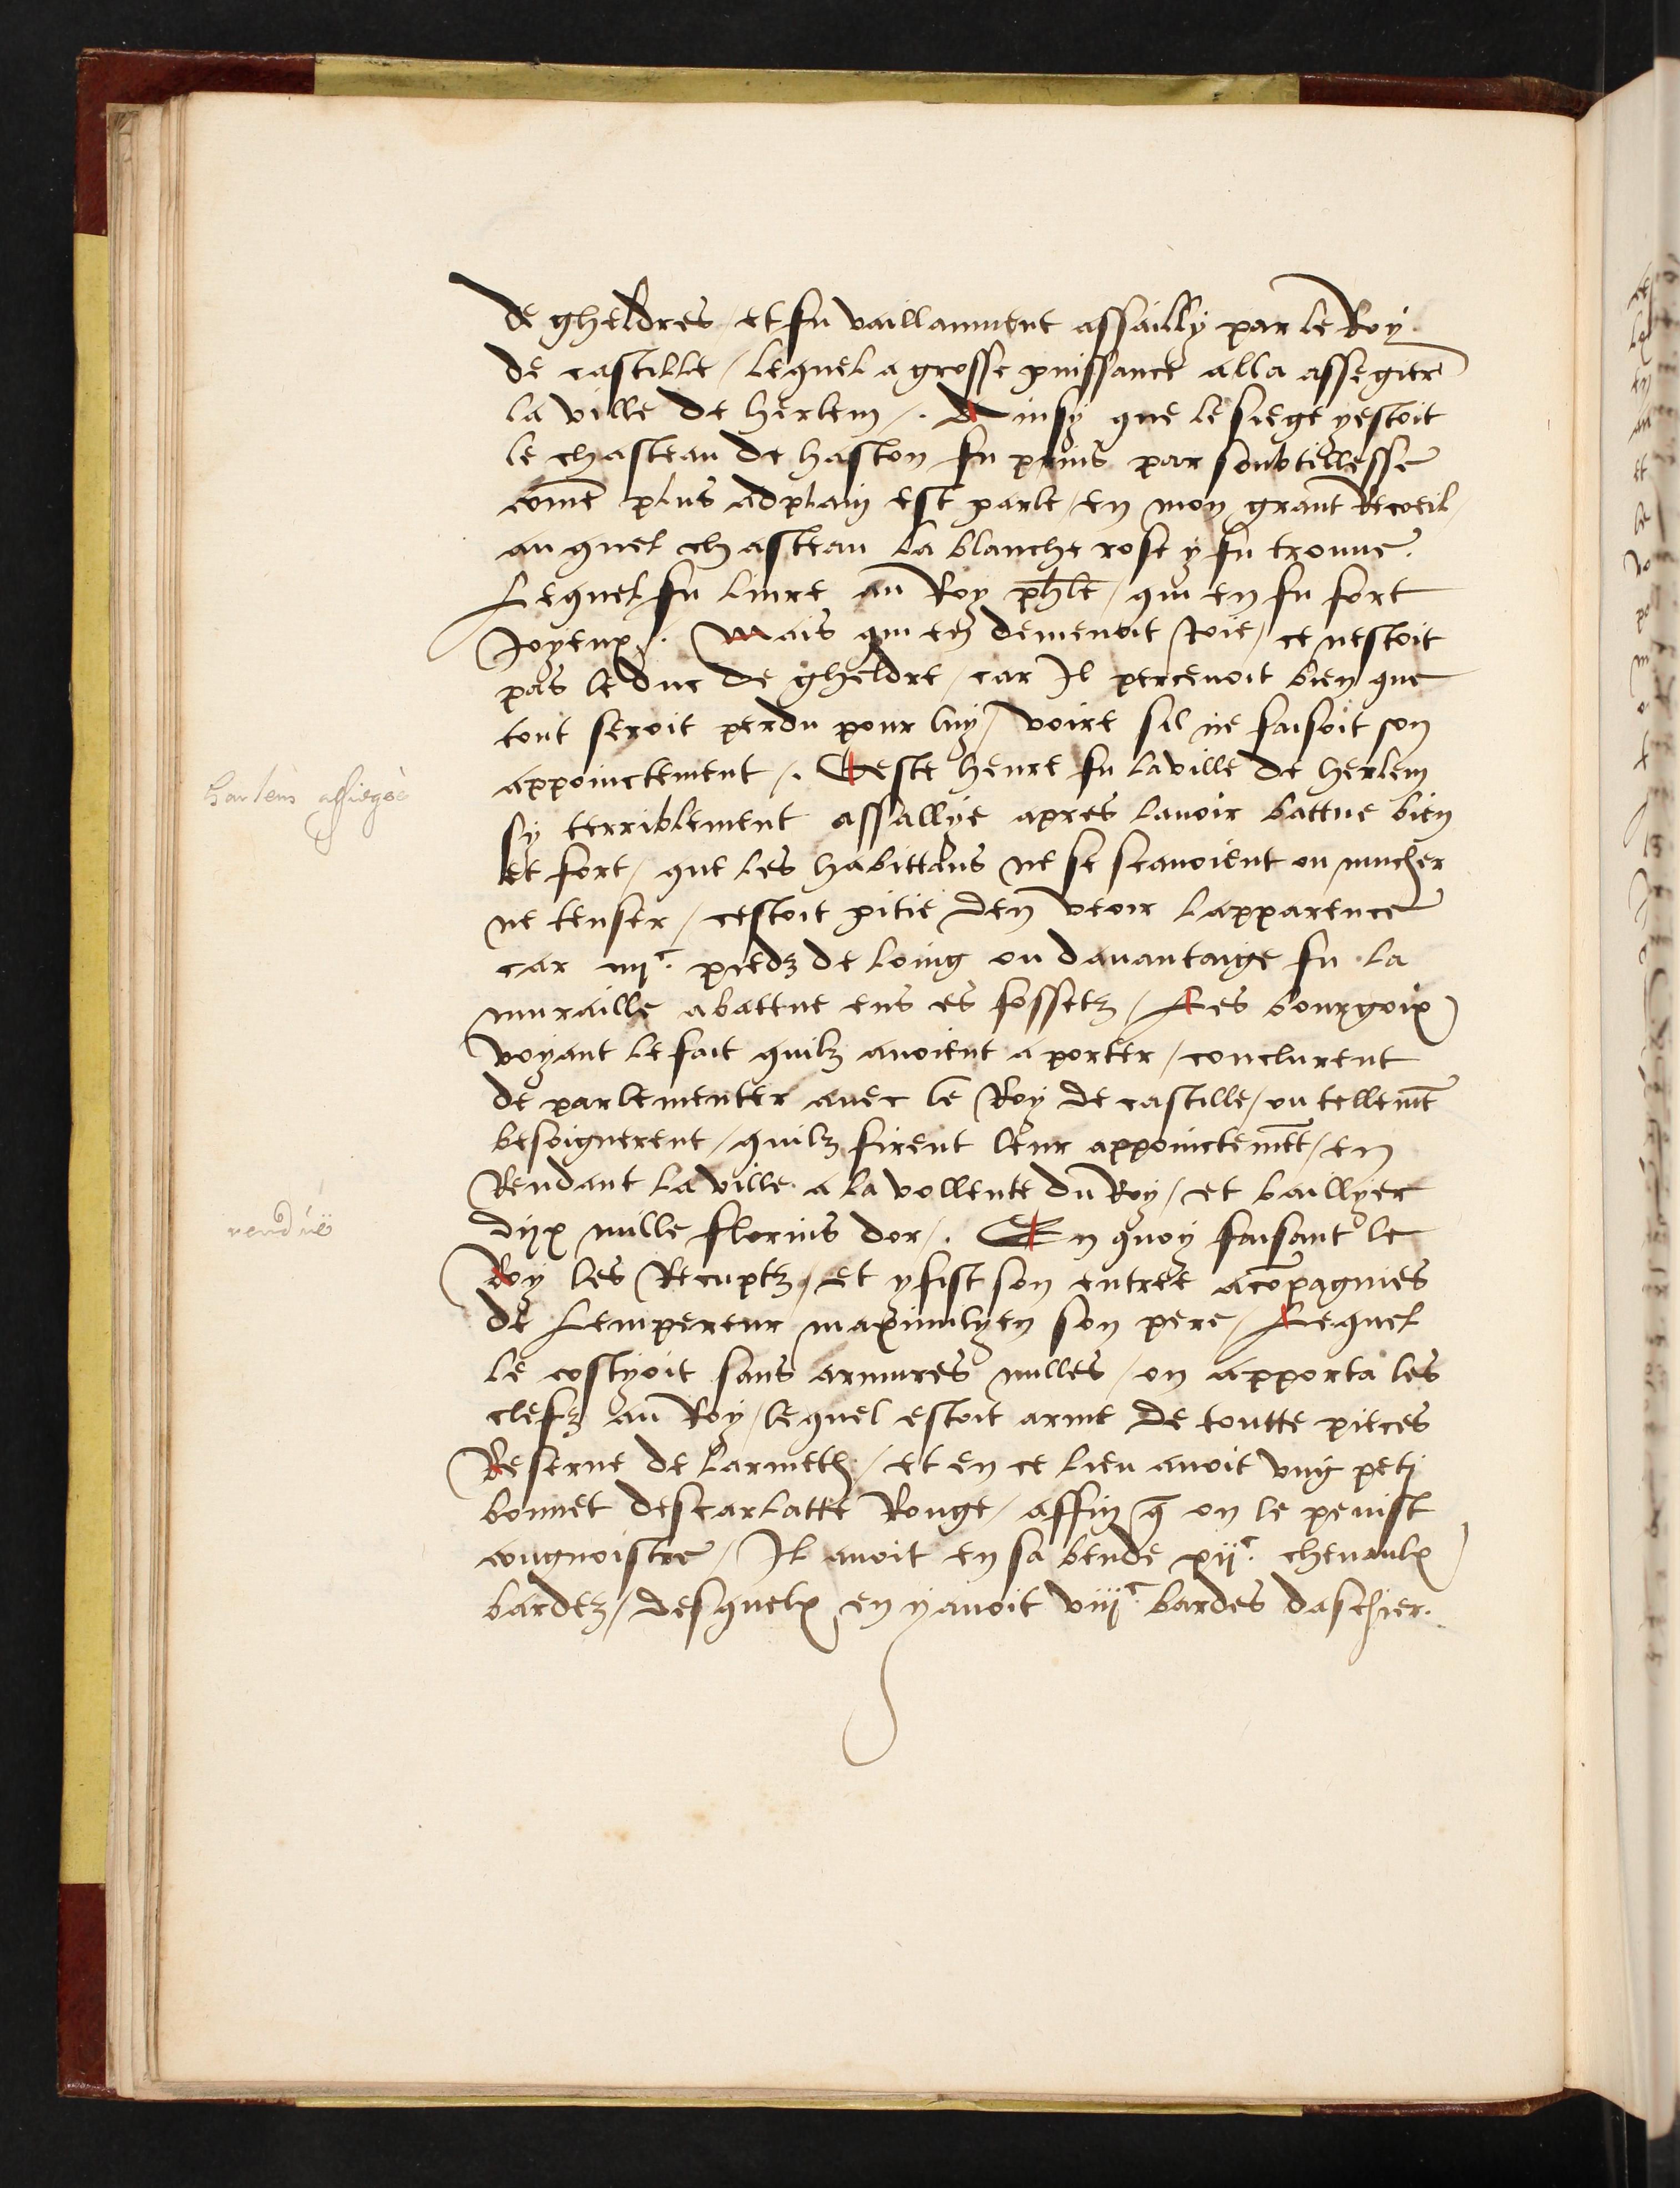 de gheldres / et fu vaillamment assailly par le Roy
de castille / lequel a grosse puissance alla assegier
la ville de herlem /. Ainsy que le siege y estoit
le chasteau de haston fu prins par soubtillesse
come plus adplain est parle / en mon grant Recoeil /
au quel chasteau la blanche rose y fu trouue.
Lequel fu liure au Roy phle / qui en fu fort
Joyeux /. Mais qui en demenoit Joie / ce nestoit
pas le duc de gheldre / car Il perceuoit bien que
tout seroit perdu pour luy / voire sil ne faisoit son
appoinctement /. Ceste heure fu la ville de herlem
sy terriblement assallye apres lauoir battue bien
et fort / que les habittans ne se scauoient ou mucher
ne tenser / cestoit pitie den veoir lapparence
car iiijc. piedz de loing ou dauantaige fu la
muraille abattue ens es fossetz / Les bourgoix
voyant le fait quilz auoient a porter / conclurent
de parlementer auec le Roy de castille / ou tellemt
besoignerent / quilz firent leur appoinctemt / en
Rendant la ville a la vollente du Roy / et baillyer
dijx mille florins dor /. En quoy faisant le
Roy les Recuptz / et y fist son entree acopagnies
de Lempereur maximilyen son pere / Lequel
le costyoit sans armures nulles / on apporta les
clefz au Roy / lequel estoit arme de toutte pieces
Reserue de larmeth / et en ce lieu auoit vng petj
bonnet descarlatte Rouge / affin q on le peuist
congnoistre / Il auoit en sa bende xijc. cheuaulx
bardez / desquelx en y auoit viijc. bardes daschier.
harlem assiegée
rendue